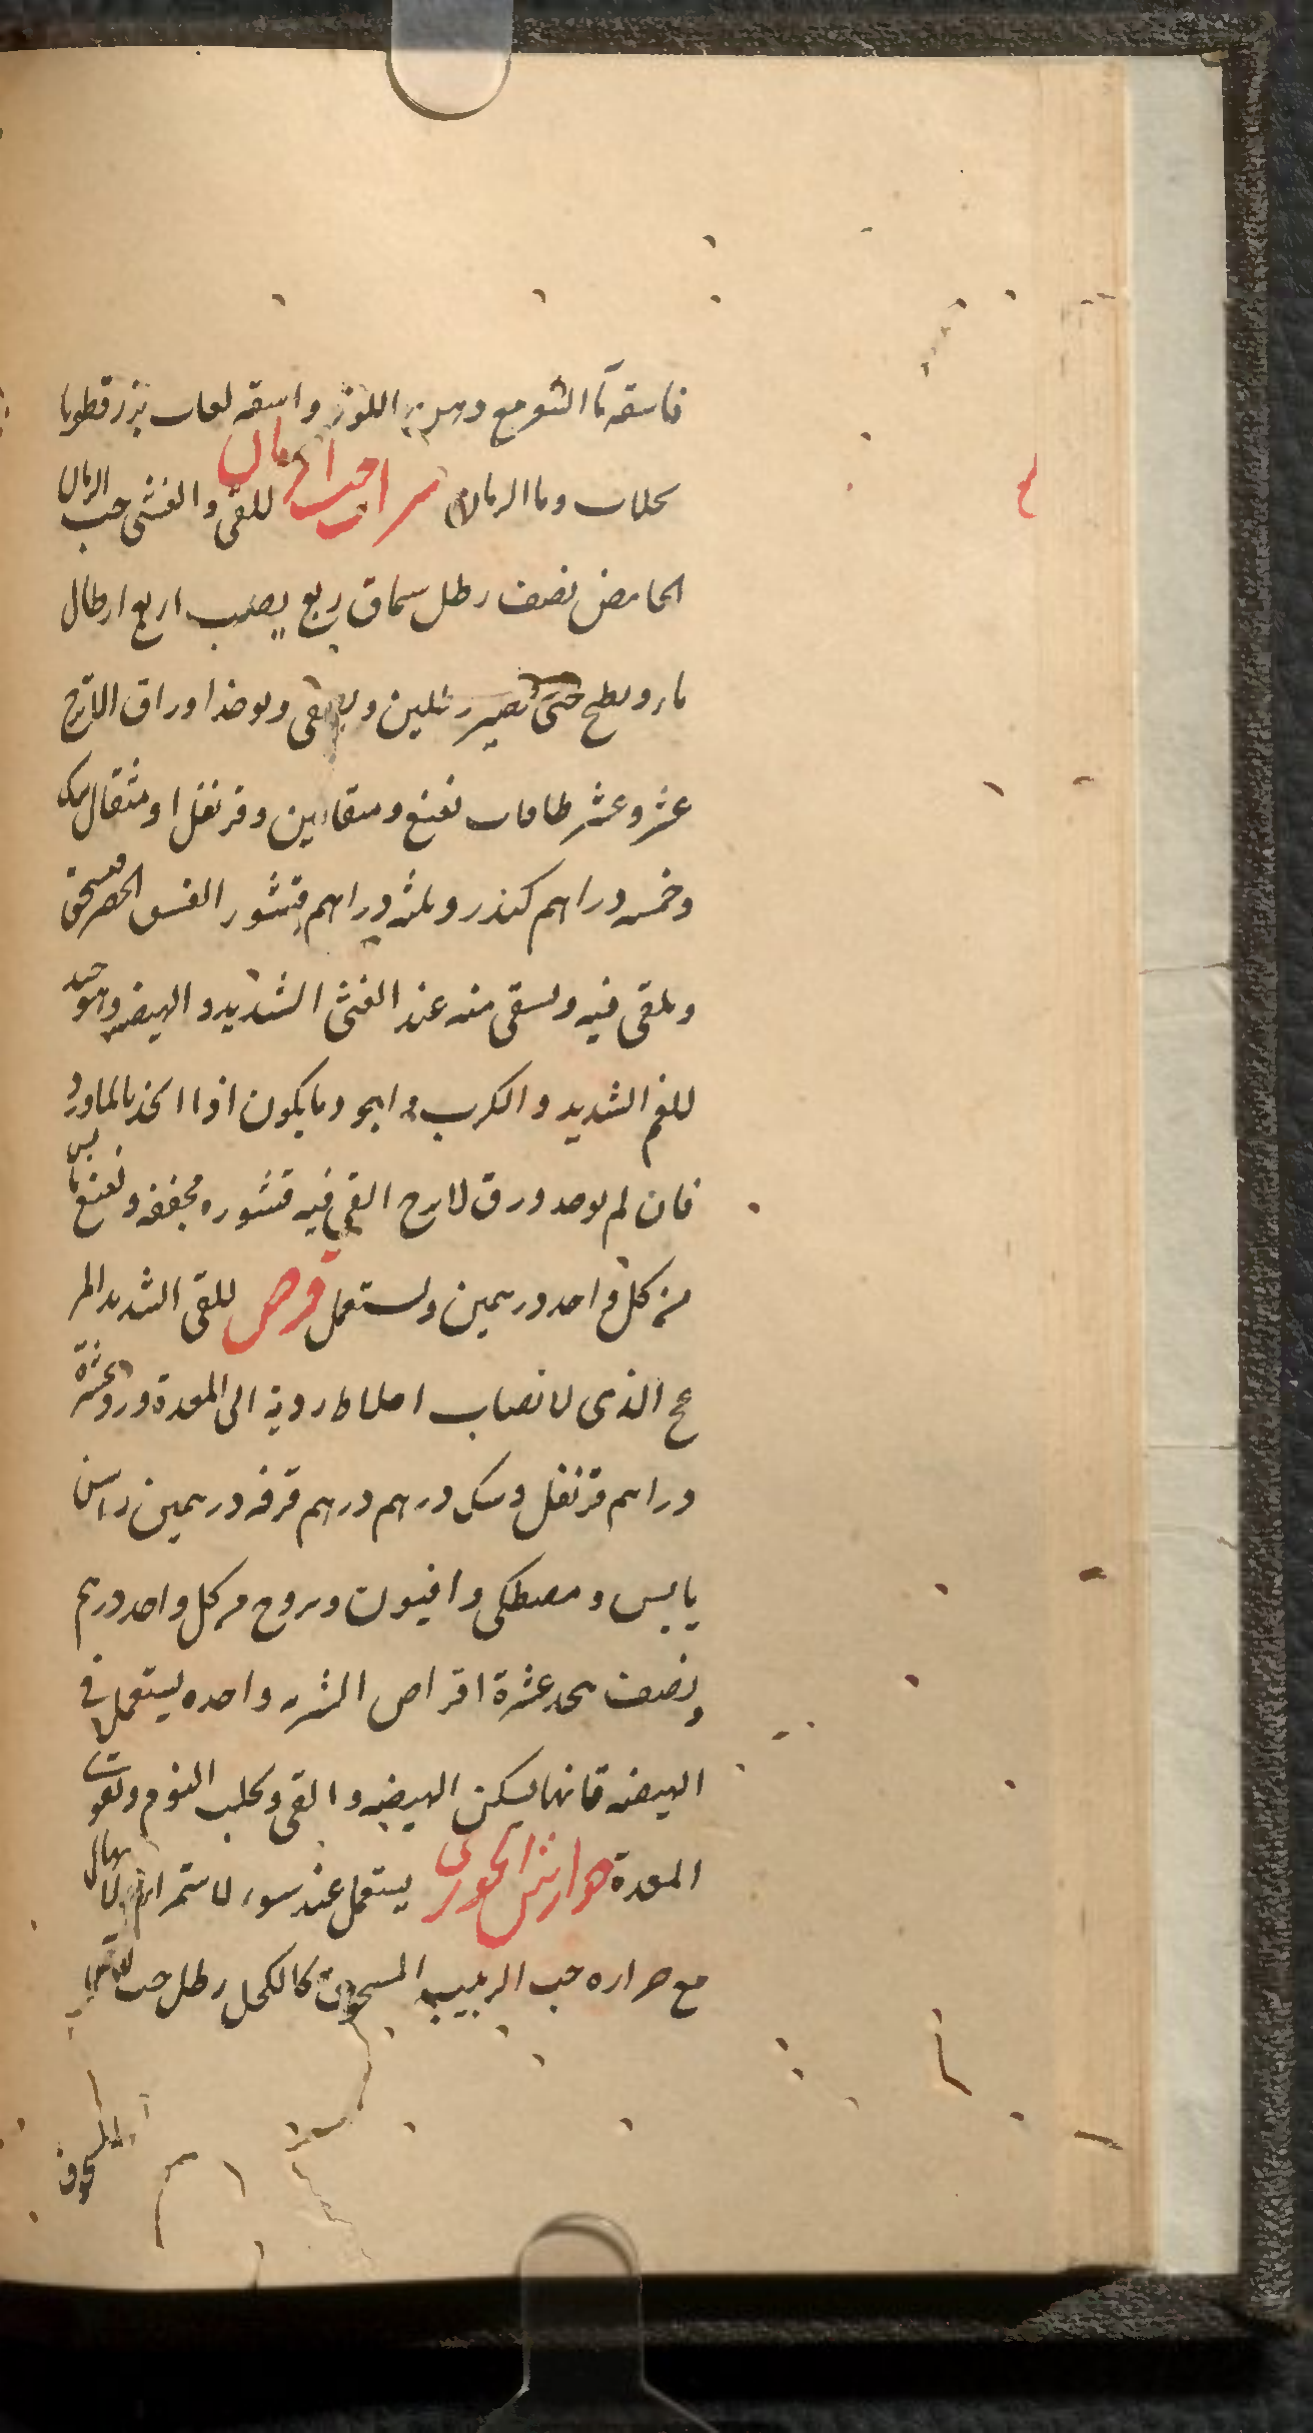 فاسقه ماالشعير مع دهن اللوز واسقه لعاب بزرقطونا
بجلاب وماالرمان شراب حب الرمان للقى والغثى حب الرمان
الحامض نصف رطل سماق ربع يصب اربع ارطال
ماء ويطبخ حتى تصير رطلين ويصفى ويوخذ اوراق الاترج
عشر وعشر طاقات نعنع ومثقالين قرنفل او مثقال سك
وخمسه دراهم كندر وثلثه دراهم قشور الفستق يسحق
ويلقى فيه ويسقى منه عند الغثى الشديد والهيضه وهو جيد
للغم الشديد والكرب واجود ما يكون اذا اتخذ بالماورد
فان لم يوجد ورق لاترج القى فيه قشوره مجففه ونعنع يابس
من كل واحد درهمين ويستعمل قرص للقى الشديد المز
عج الذى لانصباب اخلاط رديه الى المعدة ورد عشرة
دراهم قرنفل وسك درهم درهم قرفه درهمين راسن
يابس ومصطكى وافيون من كل واحد درهم
ونصف يتخذ عشرة اقراص الشربه واحده يستعمل فى
الهيضه فانها يسكن الهيضه والقى ويجلب النوم ويقوى
المعدة جوارش الخوزى يستعمل عند سوء لاستمراء والاسهال
مع حراره حب الزبيب المسحوق كالكحل رطل حب